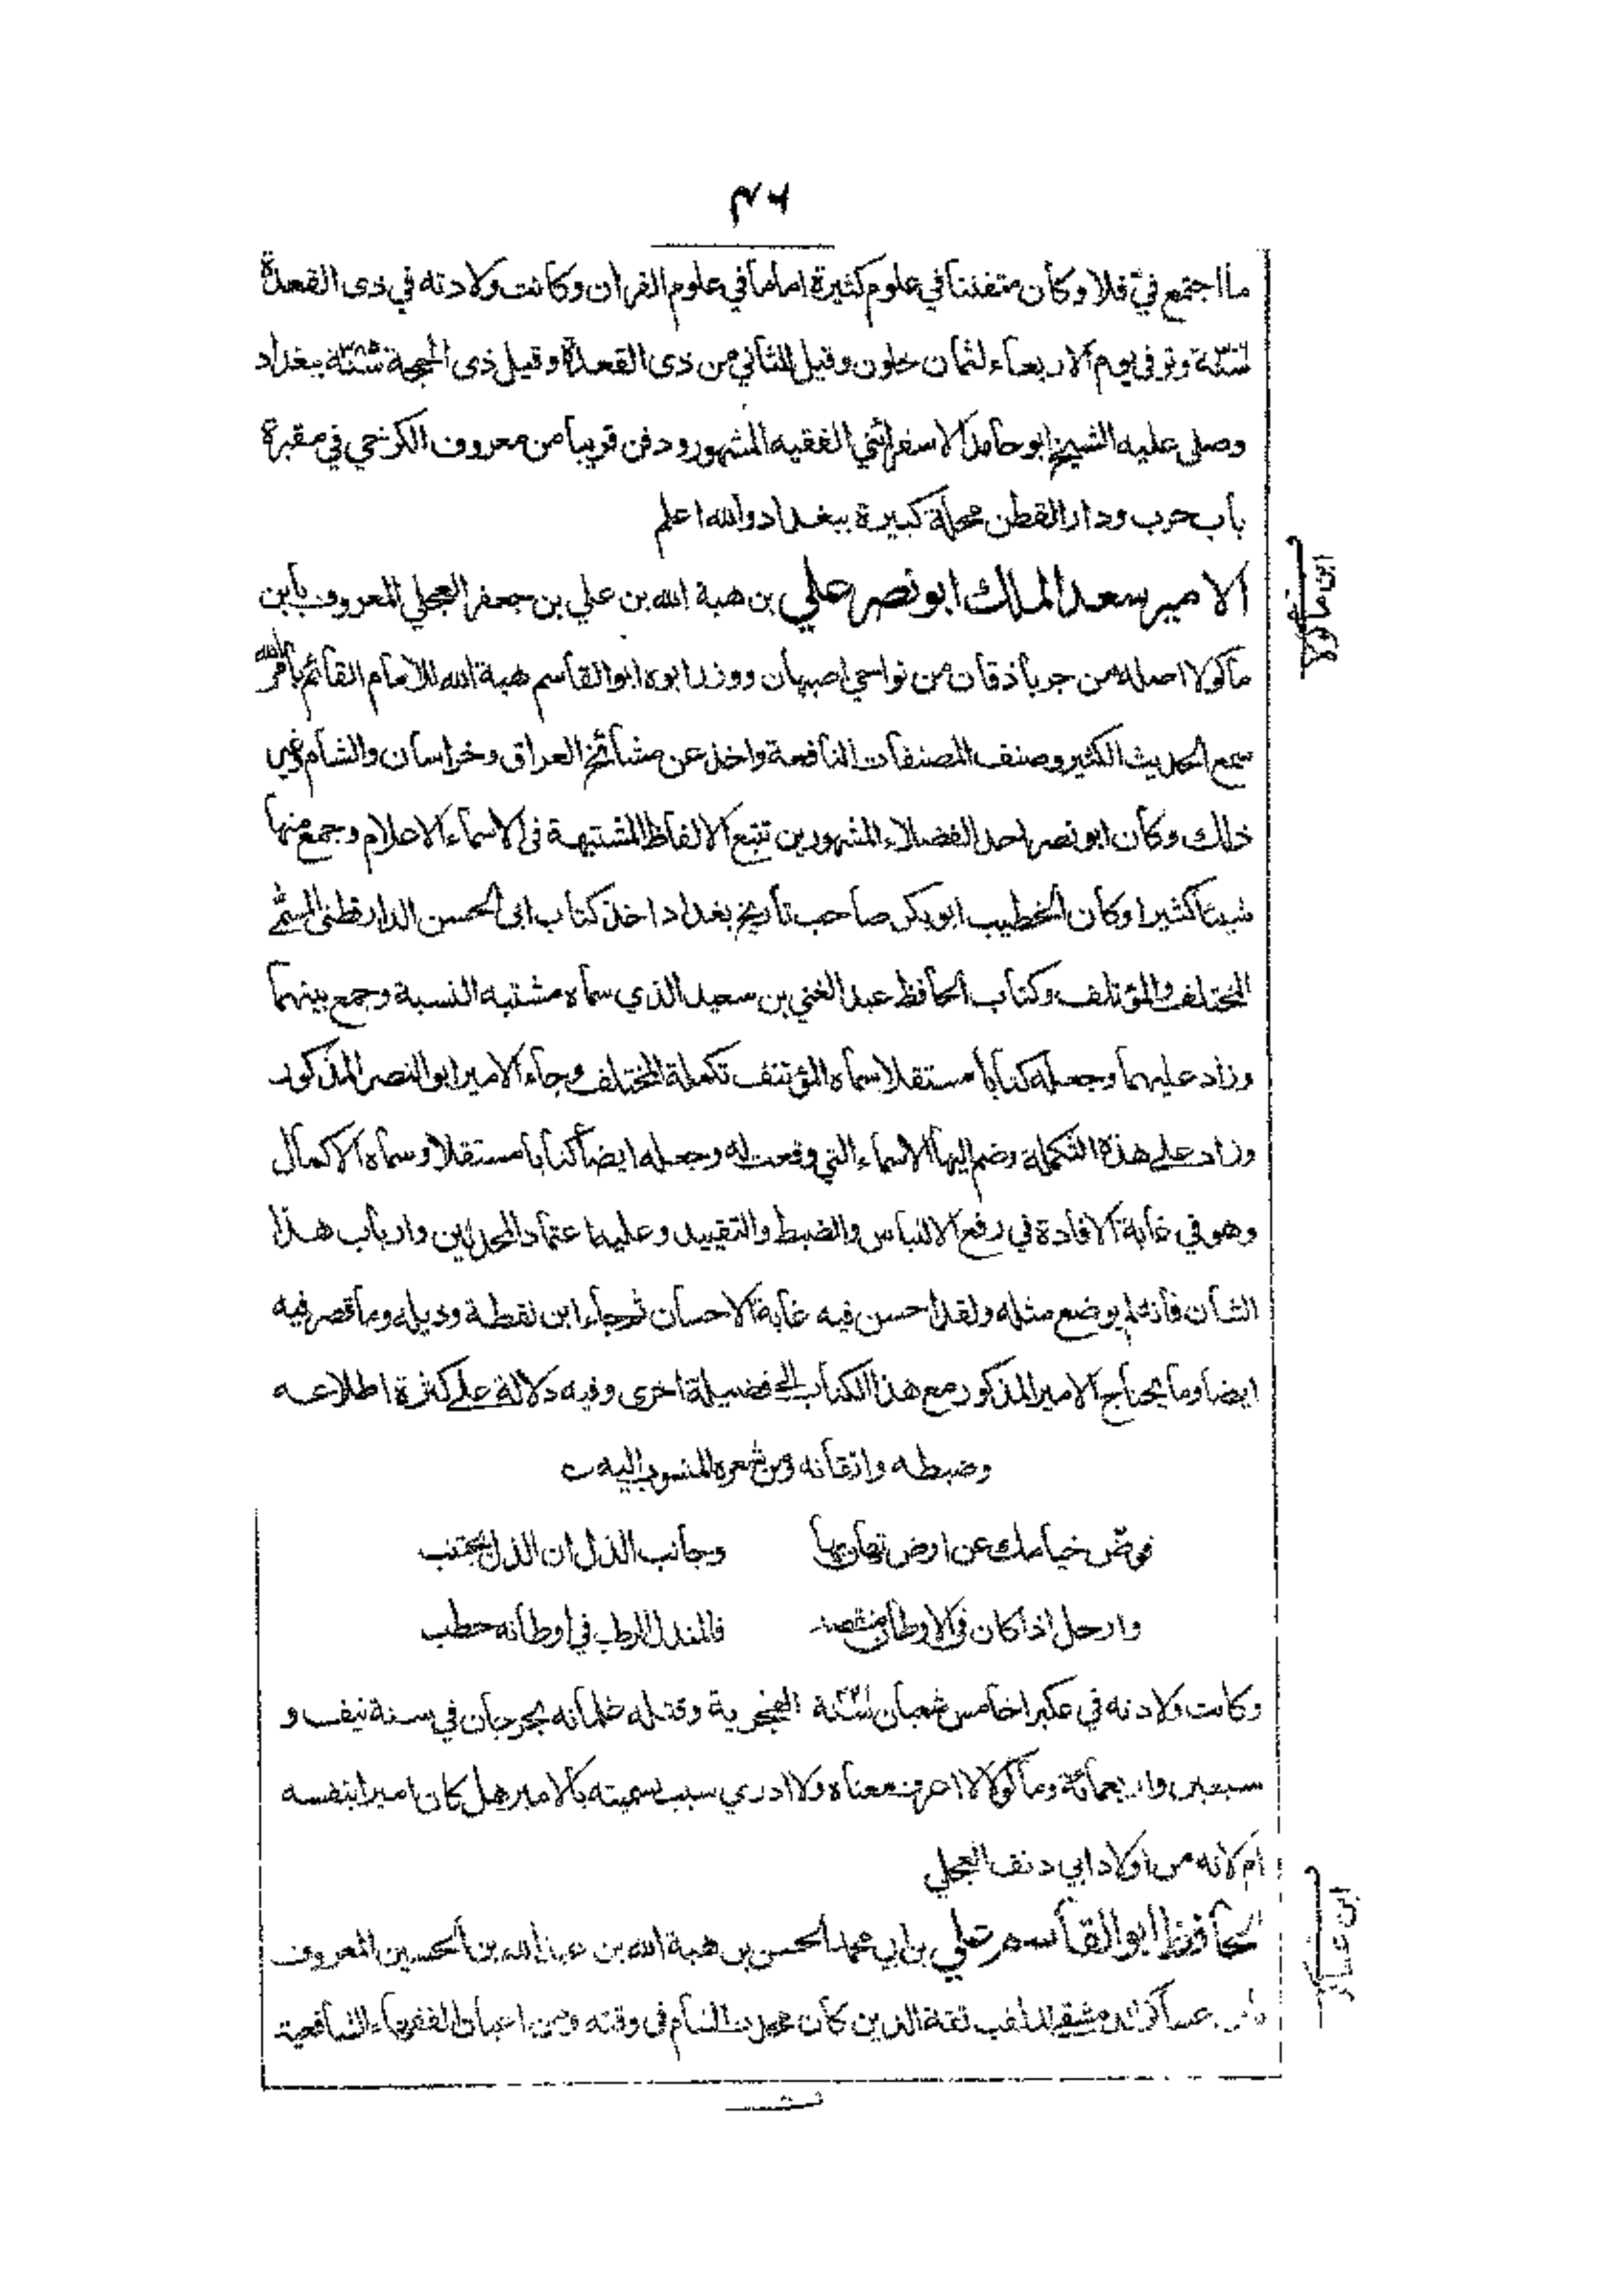 ٤٦
ما اجتمع فيّ فلا وكان متفننا في علوم كثيرة اماما في علوم القران وكانت ولادته في ذى القعدة
وتوفى يوم الاربعاء لثمان خلون وقيل للثاني من ذى القعدة وقيل ذى الحجة ببغداد
وصلى عليه الشيخ ابو حامد الاسفرائني الفقيه المشهور ودفن قريبا من معروف الكرخي في مقبرة
باب حرب ودار القطن محلة كبيرة ببغداد والله اعلم
ابن ماكولا
الامير سعد الملك ابو نصر علي بن هبة الله بن علي بن جعفر العجلي المعروف بابن
ماكولا اصله من جرباذقان من نواحي اصبهان ووزر ابوه ابو القاسم هبة الله للامام القائم بامر الله
سمع الحديث الكثير وصنف المصنفات النافعة واخذ عن مشائخ العراق وخراسان والشام وغير
ذلك وكان ابو نصر احد الفضلاء المشهورين تتبع الالفاظ المشتبهة فى الاسماء الاعلام وجمع منها
شيئا كثيرا وكان الخطيب ابو بكر صاحب تاريخ بغداد اخذ كتاب ابى الحسن الدارقطنى المسمى
المختلف والمؤتلف وكتاب الحافظ عبد الغني بن سعيد الذي سماه مشتبه النسبة وجمع بينهما
وزاد عليهما وجعله كتابا مستقلا سماه المؤتنف تكملة المختلف وجاء الامير ابو النصر المذكور
وزاد على هذه التكملة وضم اليها الاسماء التي وقعت له وجعله ايضا كتابا مستقلا وسماه الاكمال
وهو في غاية الافادة في رفع الالتباس والضبط والتقييد وعليه اعتماد المحدثين وارباب هذا
الشان فانه لم يوضع مثله ولقد احسن فيه غاية الاحسان ثم جاء ابن نقطة وذيله وما قصر فيه
ايضا وما يحتاج الامير المذكور مع هذا الكتاب الى فضيلة اخرى وفيه دلالة على كثرة اطلاعه
وضبطه واتقانه ومن شعره المنسوب اليه
قوض خيامك عن ارض تهان بها وجانب الذل ان الذل يجتنب
وارحل اذا كان فى الاوطان منقصة فالمندل الرطب في اوطانه حطب
وكانت ولادته في عكبرا خامس شعبان الهجرية وقتله غلمانه بجرجان في سنة نيف و
سبعين واربعمائة وماكولا لا اعرف معناه ولا ادري سبب تسميته بالامير هل كان اميرا بنفسه
ام لانه من اولاد ابي دلف العجلي
ابن عساكر
الحافظ ابو القاسم علي بن ابي محمد الحسن بن هبة الله بن عبد الله بن الحسين المعروف
بابن عساكر الدمشقي الملقب ثقة الدين كان محدث الشام فى وقته ومن اعيان الفقهاء الشافعية